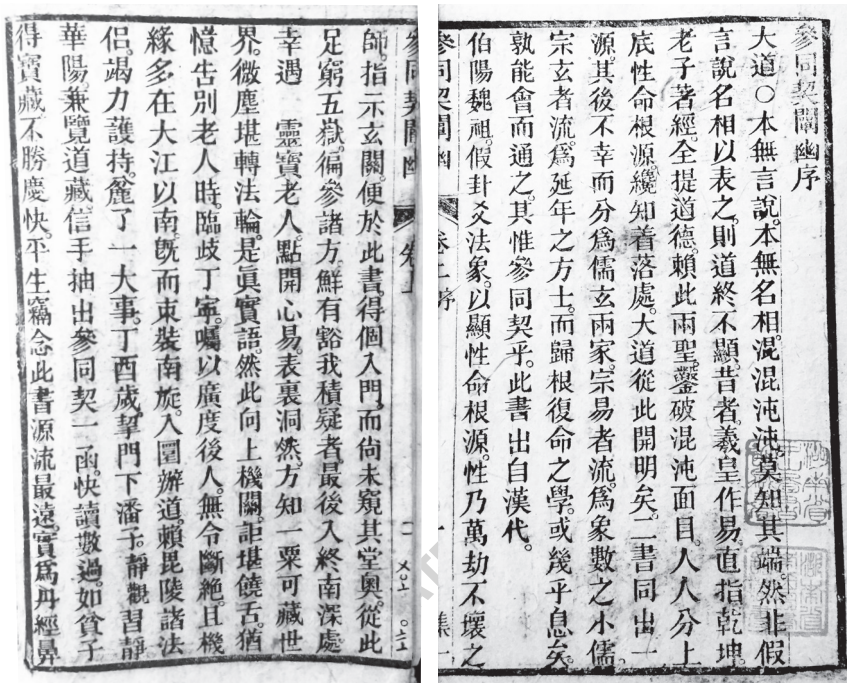 參同契闡幽序
大道〇本無言說。本無名相。混混沌沌。莫知其端。然非假
言說名相以表之。則道終不顯。昔者。羲皇作易。直指乾坤。
老子著經。全提道德。賴此兩聖。鑿破混沌面目。人人分上
底性命根源。纔知着落處。大道從此開明矣。二書同出一
源。其後不幸而分為儒玄兩家。宗易者流。為象數之小儒。
宗玄者流。為延年之方士。而歸根復命之學。或幾乎息矣。
孰能會而通之。其惟參同契乎。此書出自漢代。
伯陽魏祖。假卦爻法象。以顯性命根源。性乃萬劫不壞之
參同契闡幽 卷上序 一 集一
參同契闡幽 卷上 一
師。指示玄關。便於此書。得個入門。而尚未窺其堂奧。從此
足窮五嶽。徧參諸方。鮮有豁我積疑者。最後入終南深處
幸遇 靈寶老人。點開心易。表裏洞然。方知一粟可藏世
界。微塵堪轉法輪。是眞實語。然此向上機關。詎堪饒舌。猶
憶告別老人時。臨歧丁寧。囑以廣度後人。無令斷絕。且機
緣多在大江以南。旣而束裝南旋。入圜辦道。賴毘陵諸法
侶。竭力護持。麄了一大事。丁酉歲。挈門下潘子。靜觀習靜
華陽。兼覽道藏。信手抽出參同契一函。快讀數過。如貧子
得寶藏。不勝慶快。平生竊念此書源流最遠。實為丹經鼻